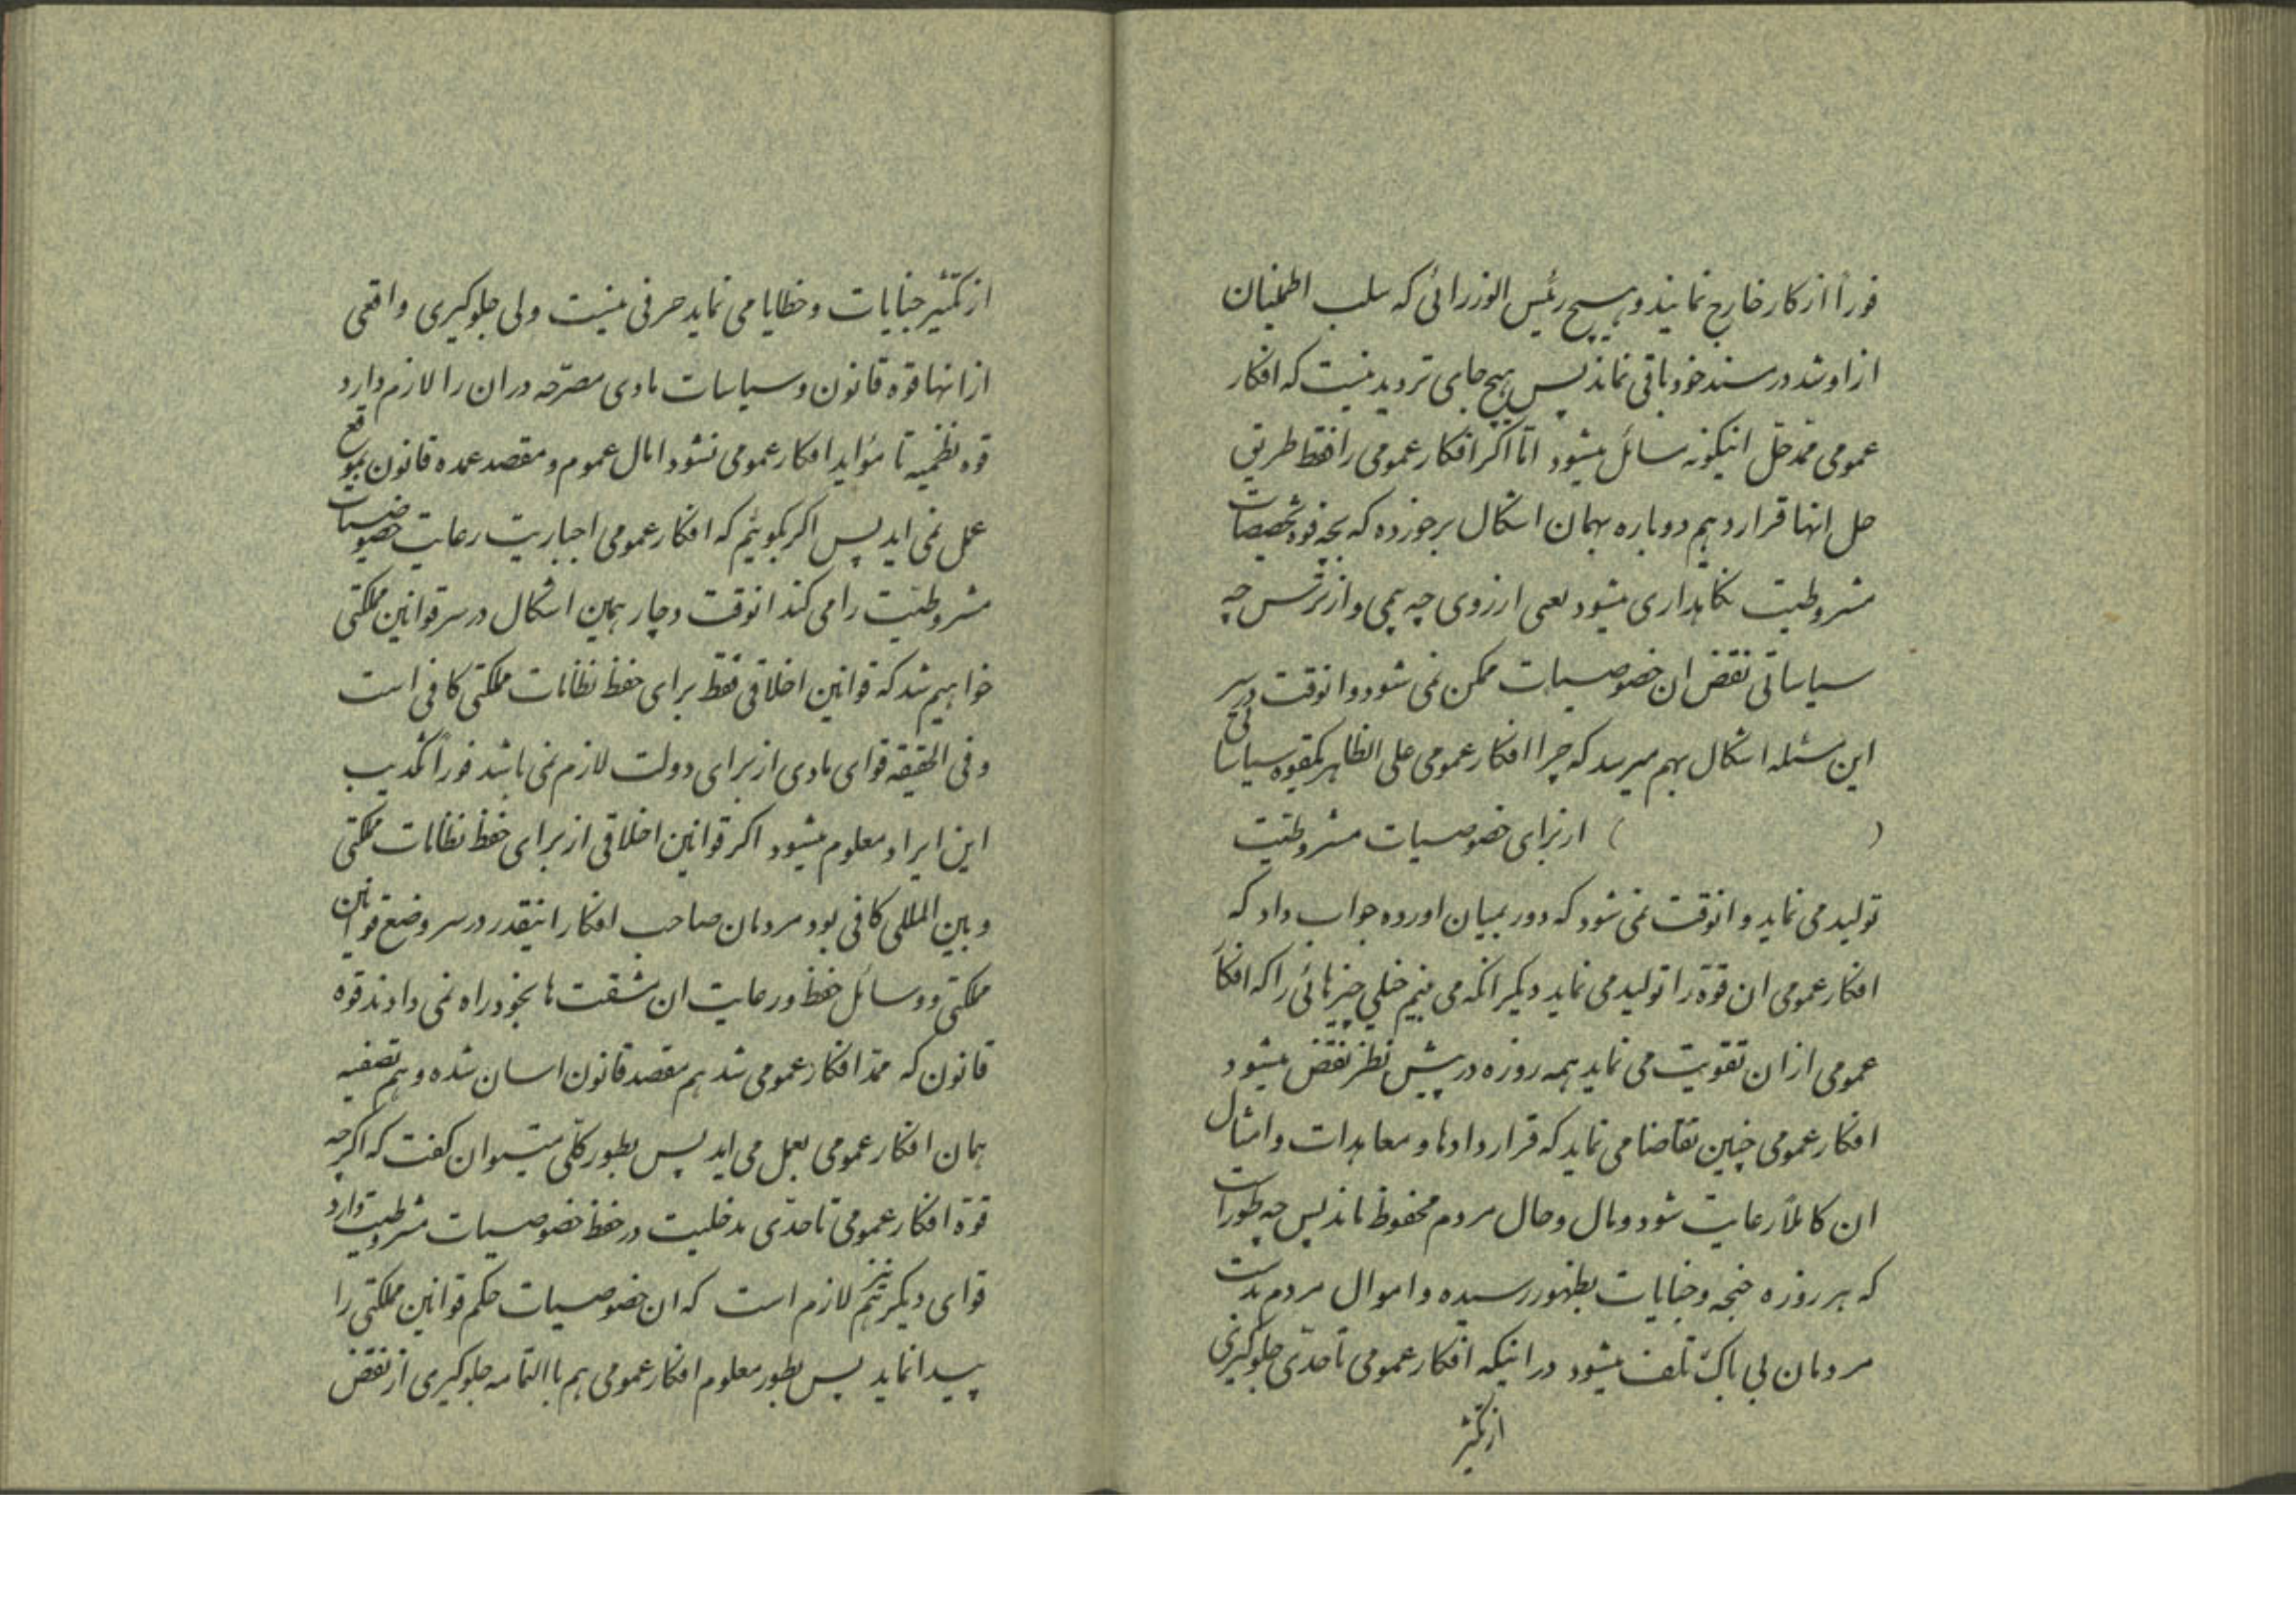 فوراً از کار خارج نمایند و هیچ رئیس الوزرائی که سلب اطمینان
از او شد در مسند خود باقی نماند پس هیچ جای تردید نیست که افکار
عمومی ممد حل اینگونه مسائل میشود امّا اگر افکار عمومی را فقط طریق
حل انها قرار دهیم دوباره بهمان اشکال برخورده که بچه قوه خصوصیات
مشروطیت نگاهداری میشود یعنی ارزوی چه چیز و از ترس چه
سیاساتی نقض ان خصوصیات ممکن نمی شود و انوقت در سر
این مسئله اشکال بهم میرسد که چرا افکار عمومی علی الظاهر یکقوه سیاسا
( ) از برای خصوصیات مشروطیت
تولید می نماید و انوقت نمی شود که دور بمیان اورده جواب داد که
افکار عمومی ان قوّه را تولید می نماید دیگر انکه می بینیم خیلی چیزهائی را که افکار
عمومی از ان تقویت می نماید همه روزه در پیش نظر نقض میشود
افکار عمومی چنین تقاضا می نماید که قراردادها و معاهدات و امثال
ان کاملاً رعایت شود و مال و حال مردم محفوظ ماند پس چه طور است
که هر روزه جنحه و جنایات بظهور رسیده و اموال مردم بدست
مردمان بی باک تلف میشود در اینکه افکار عمومی تا حدّی جلوگیری
از تکثیر
از تکثیر جنایات و خطایا می نماید حرفی نیست ولی جلوگیری واقعی
از انها قوه قانون و سیاسات مادی مصرّحه در ان را لازم دارد
قوه نظمیه تا مؤاید افکار عمومی نشود امال عموم و مقصد عمده قانون بموقع
عمل نمی اید پس اگر بگوئیم که افکار عمومی اجباریت رعایت خصوصیات
مشروطیت را می کند انوقت دچار همین اشکال در سر قوانین مملکتی
خواهیم شد که قوانین اخلاقی فقط برای حفظ نظامات مملکتی کافی است
و فی الحقیقه قوای مادی از برای دولت لازم نمی باشد فوراً تکذیب
این ایراد معلوم میشود اگر قوانین اخلاقی از برای حفظ نظامات مملکتی
و بین المللی کافی بود مردمان صاحب افکار اینقدر در سر وضع قوانین
مملکتی و وسائل حفظ و رعایت ان مشقت ها بخود راه نمی دادند قوه
قانون که ممدّ افکار عمومی شد هم مقصد قانون اسان شده و هم تصفیه
همان افکار عمومی بعمل می اید پس بطور کلّی میتوان گفت که اگرچه
قوّه افکار عمومی تا حدّی مدخلیت در حفظ خصوصیات مشروطیت دارد
قوای دیگر نیز هم لازم است که ان خصوصیات حکم قوانین مملکتی را
پیدا نماید پس بطور معلوم افکار عمومی هم با التمامه جلوگیری از نقض